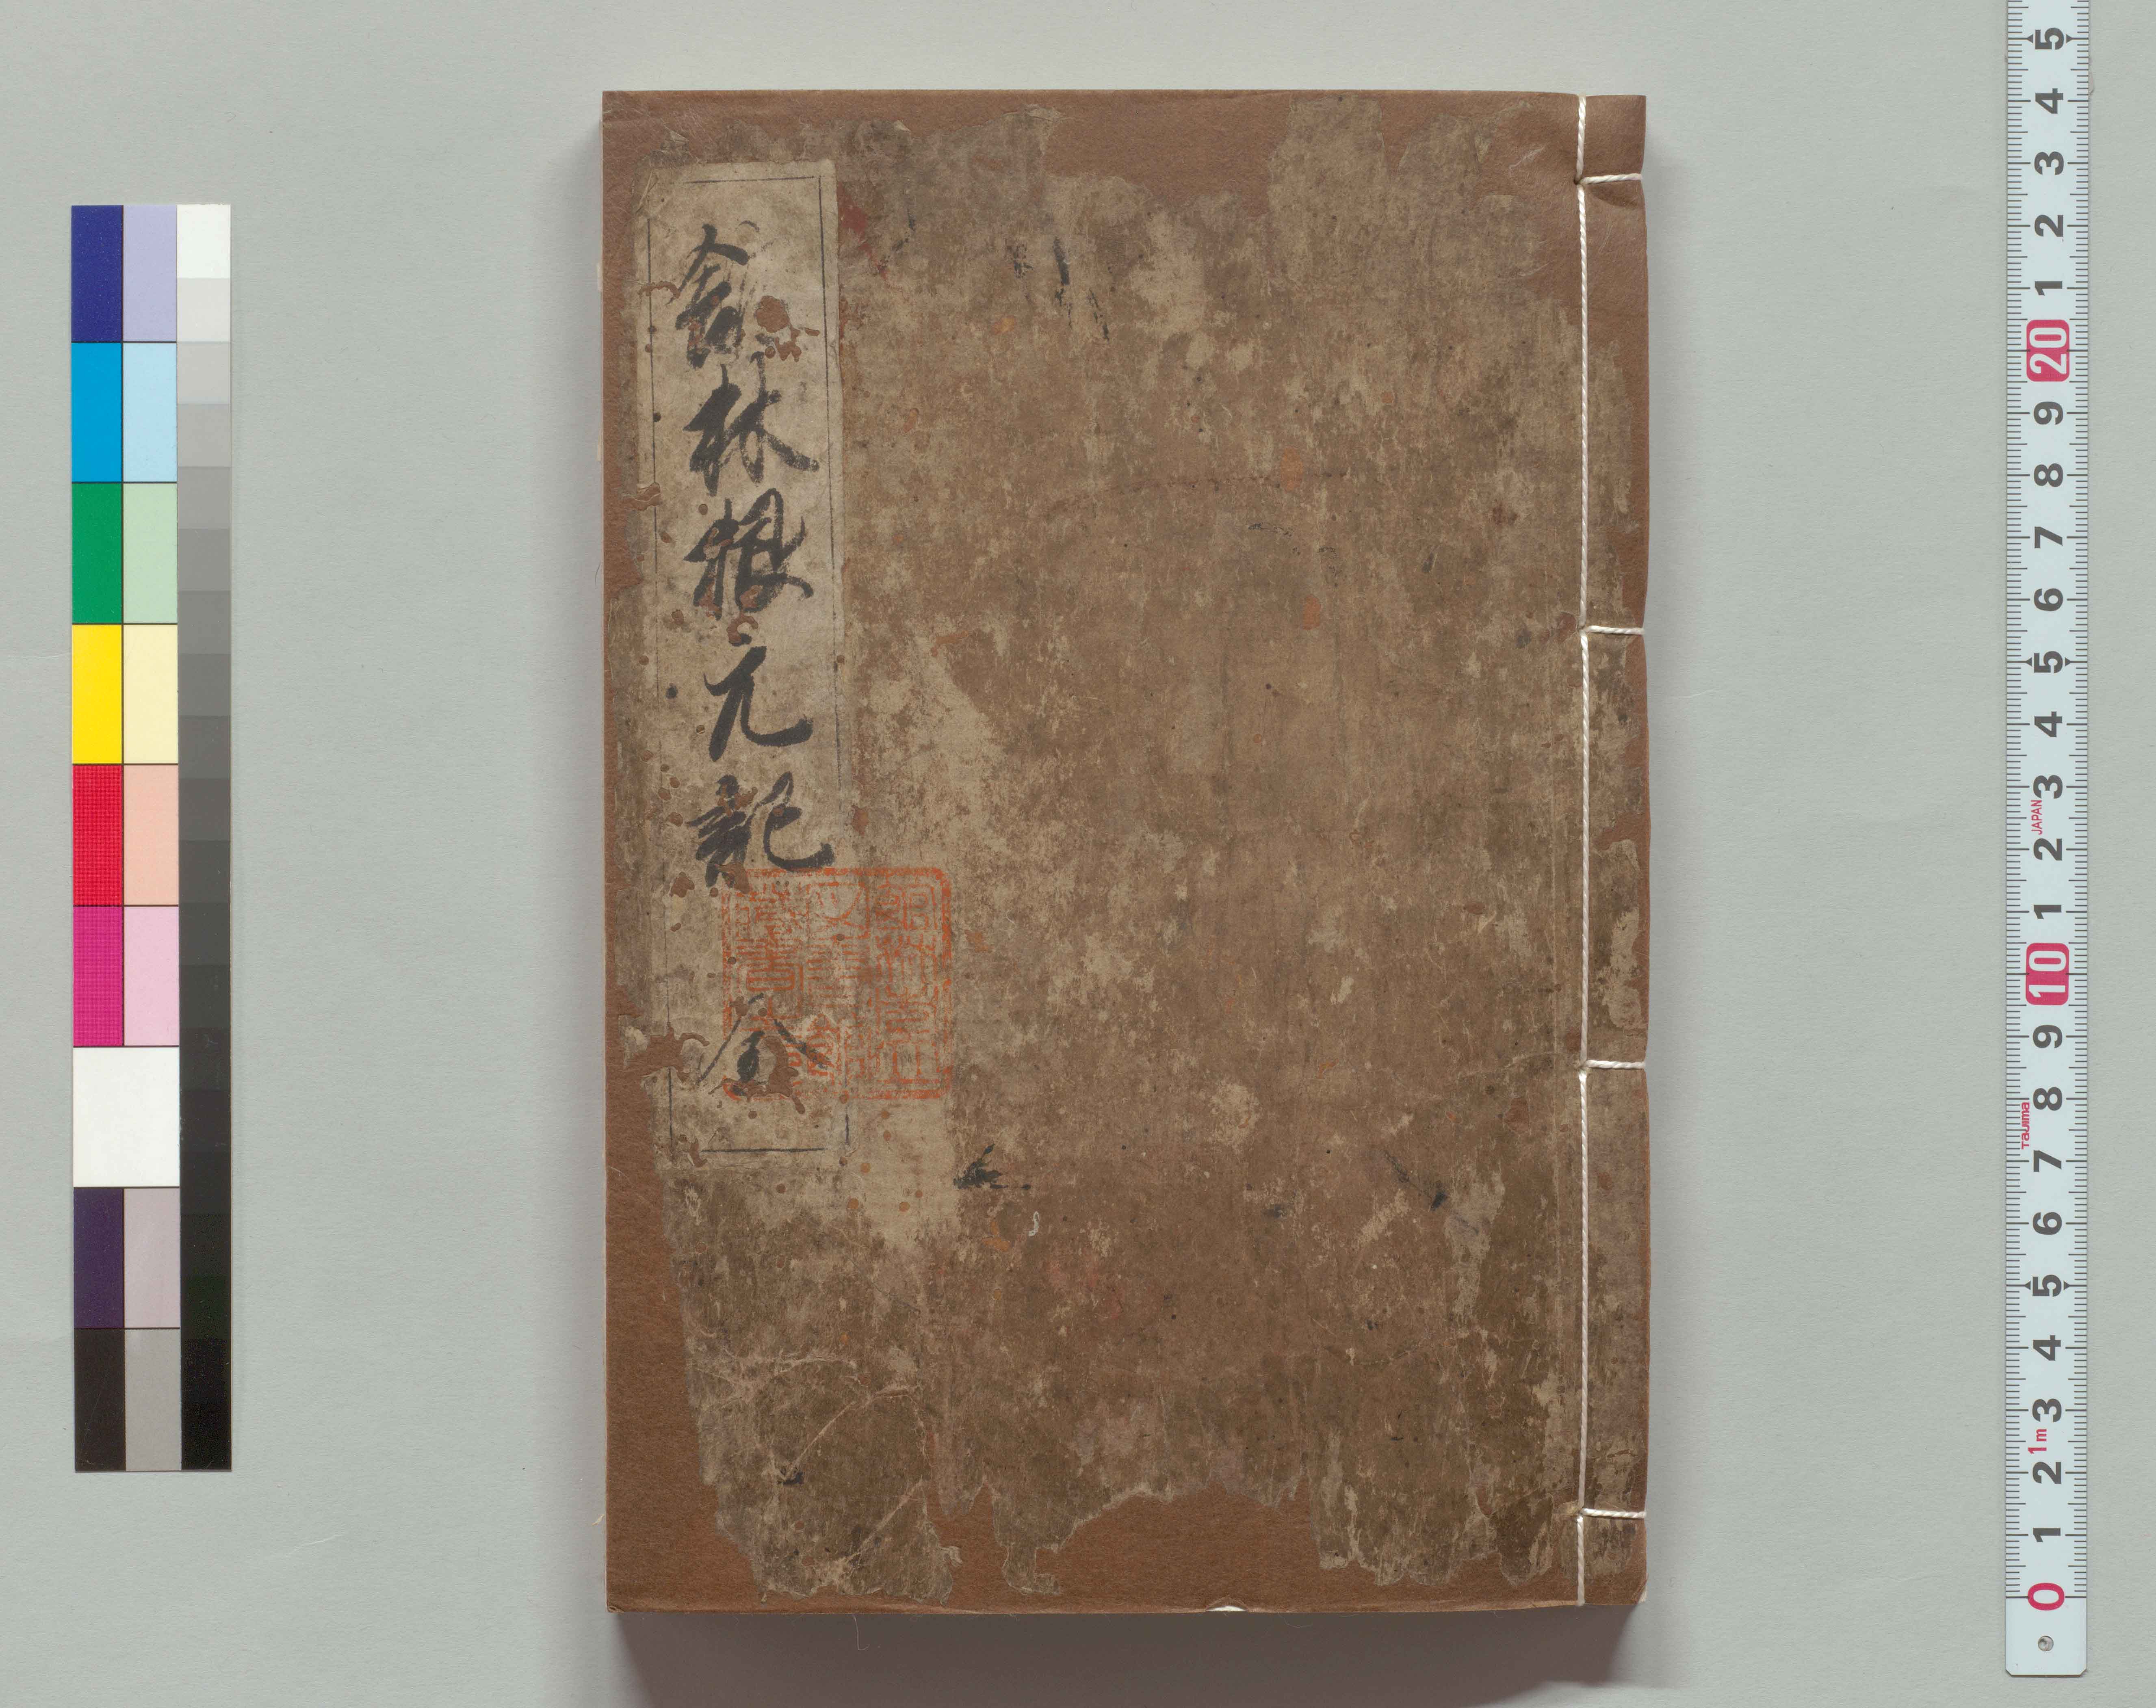 舎林根元記 全
5 4 3 2 1 20 9 8 7 6 5 4 3 2 1 10 9 8 7 6 5 4 3 2 1 0
JAPAN
Tajima
1m